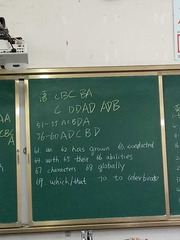 CBC BA
C DDAD ADB
51-55 A
76-60 ADCBD
61. an 62 has grown 63 conducted
64 with 65 their 66 abilities
67 characters 68 globally
69 which/that 70 to celebrate